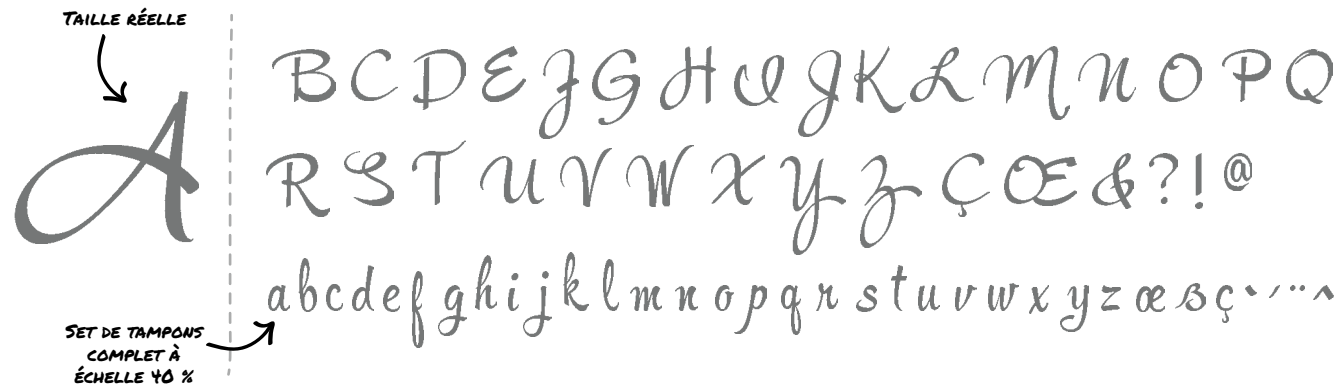 TAILLE RÉELLE
A
B C D E F G H I J K L M N O P Q
R S T U V W X Y Z Ç Œ & ? ! @
a b c d e f g h i j k l m n o p q r s t u v w x y z œ ß ç ` ´ ¨ ^
SET DE TAMPONS
COMPLET À
ÉCHELLE 40 %